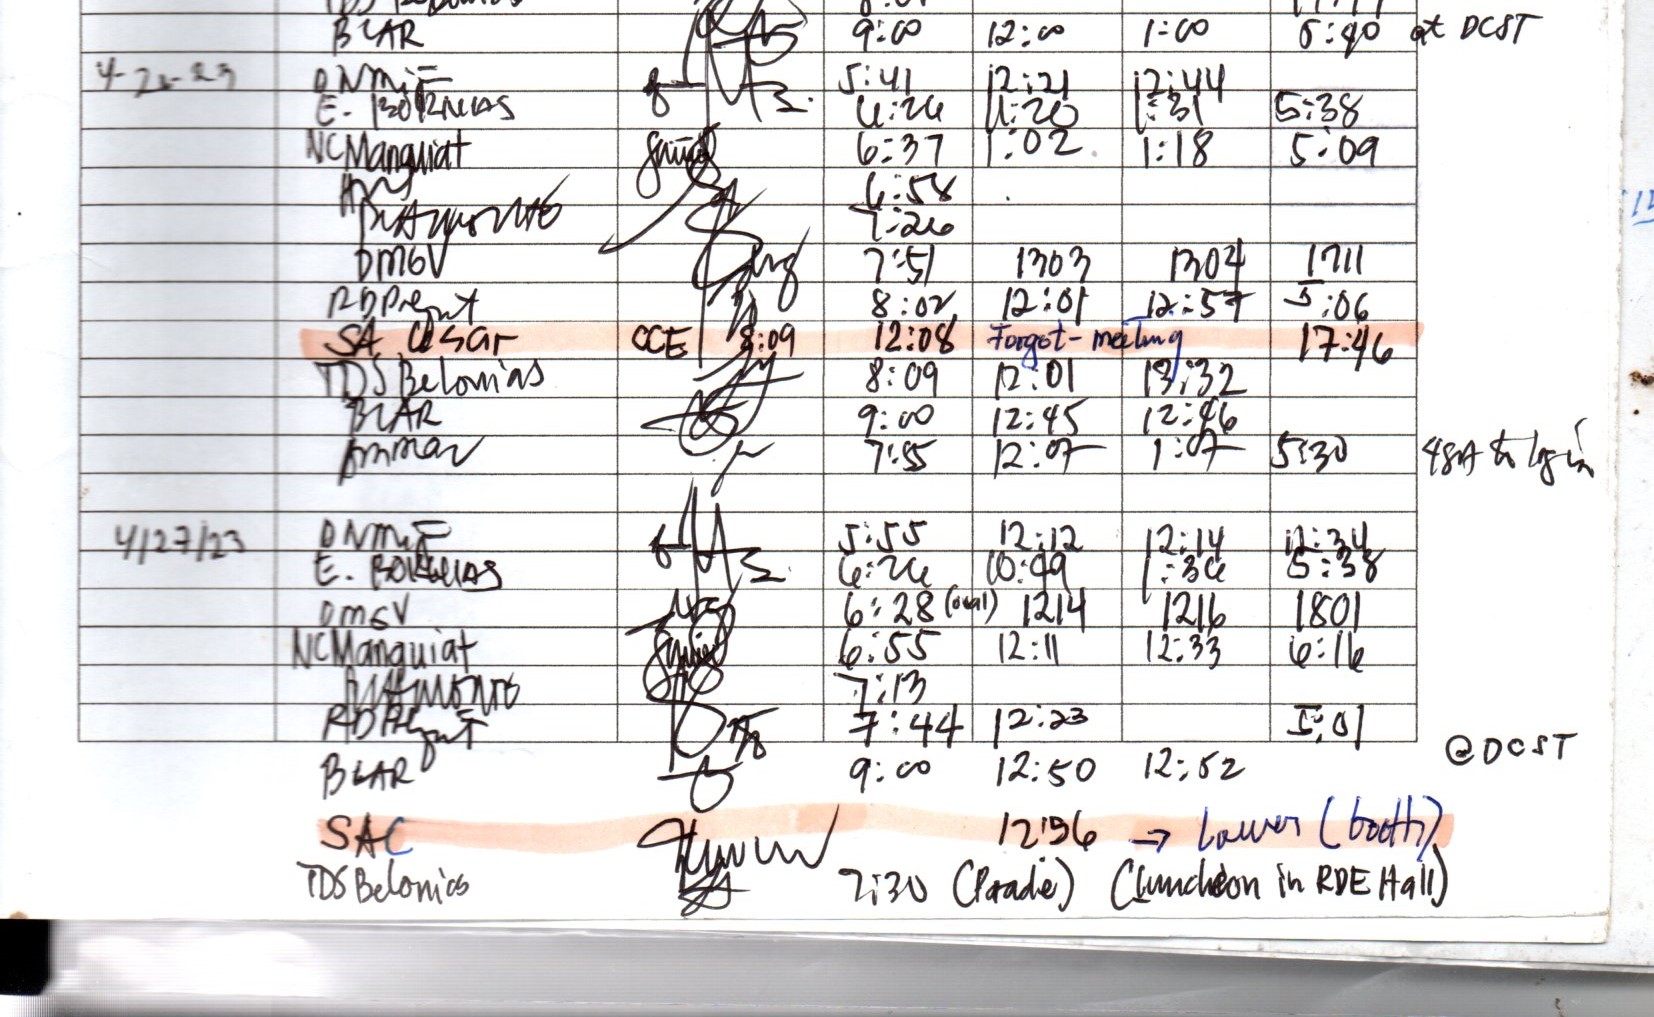 BLAR 9:00 12:00 1:00 5:40 at DCST
DNMif 5:41 12:21 12:44
E. 6:26 1:20 1:31 5:38
NCManguiat 6:37 1:02 1:18 5:09
6:58
7:26
DMGV 7:51 1303 1304 1711
RDPregunt 8:02 12:01 12:57 5:06
SA Cesar CCE 8:09 12:08 Forgot - meeting 17:46
TDS Belonias 8:09 12:01 13:32
BLAR 9:00 12:45 12:46
7:55 12:07 1:07 5:30 to log in
4/27/23 DNMif 5:55 12:12 12:14 12:34
E. 6:26 10:49 1:36 5:38
DMGV 6:28 (oval) 1214 1216 1801
NCManguiat 6:55 12:11 12:33 6:16
7:13
RDPregunt 7:44 12:23 5:01
@DCST
BLAR 9:00 12:50 12:52
SAC 12:56 → Lower (booth)
TDS Belonias 7:30 (Parade) (Luncheon in RDE Hall)